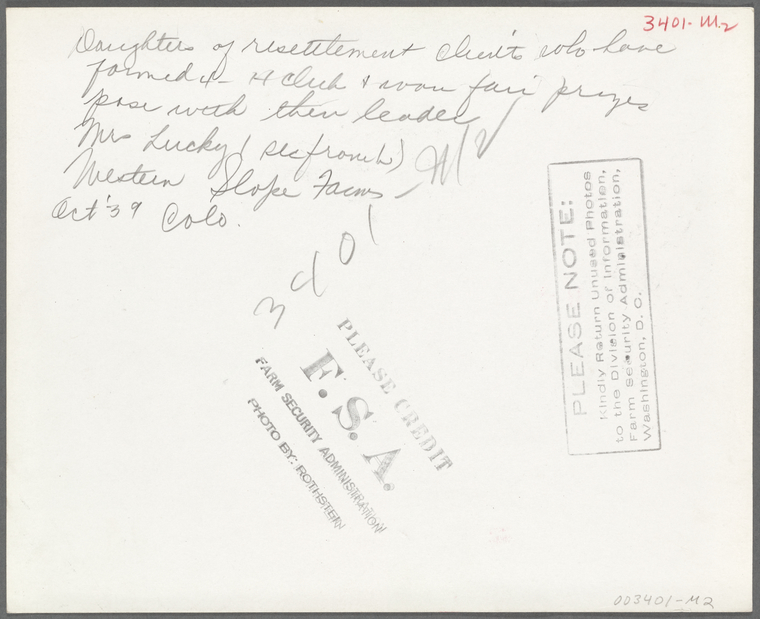 3401-M2
Daughters of resettlement clients who have
formed 4-H club & won fair prizes
pose with their leader
Mrs Lucky (sec from L)
Western Slope Farms - M2
Oct '39 Colo.
3401
PLEASE CREDIT
F. S. A.
FARM SECURITY ADMINISTRATION
PHOTO BY: ROTHSTEIN
PLEASE NOTE:
Kindly Return Unused Photos
to the Division of Information,
Farm Security Administration,
Washington, D. C.
003401-M2